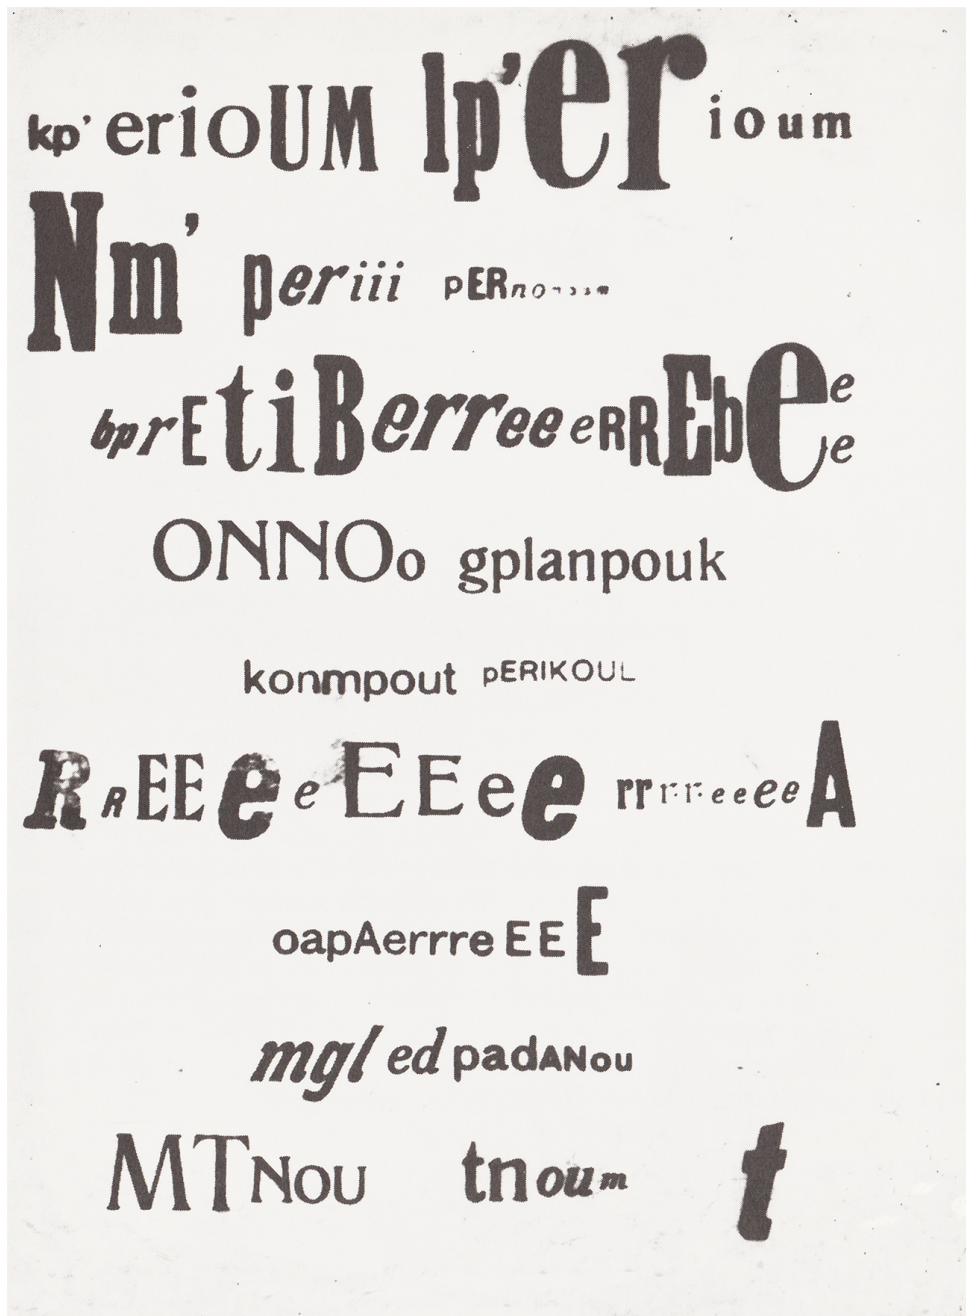 kp' erioUM lp'er ioum
Nm' periii pERno
bprEtiBerreeeRREbeee
ONNOo gplanpouk
konmpout pERIKOUL
RrEEeeEEee rrrreeeeA
oapAerrreEEE
mgl ed padANou
MTNou tnoum t